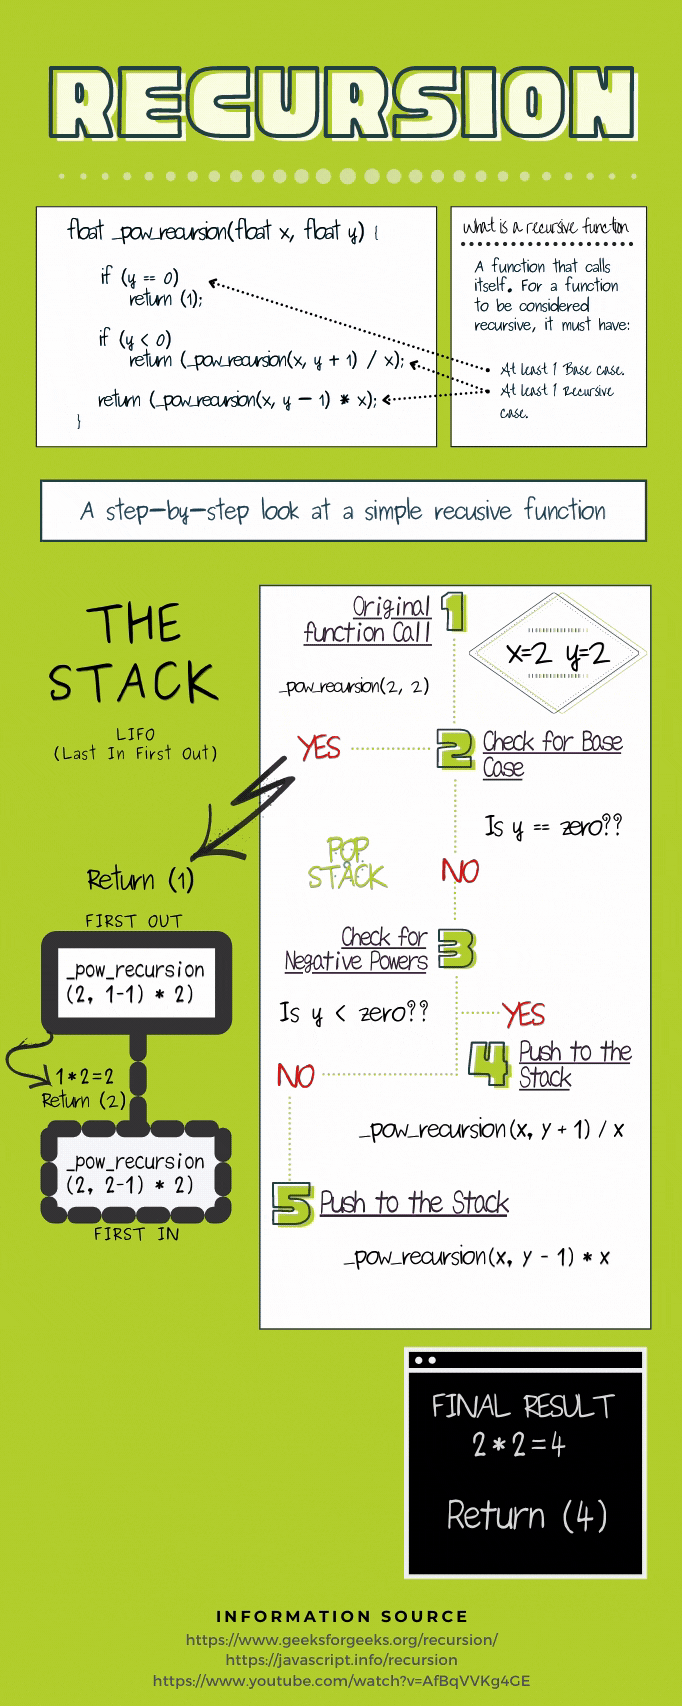 RECURSION
float _pow_recursion(float x, float y) {
if (y == 0)
return (1);
if (y < 0)
return (_pow_recursion(x, y + 1) / x);
return (_pow_recursion(x, y - 1) * x);
}
what is a recursive function
A function that calls
itself. For a function
to be considered
recursive, it must have:
At least 1 Base case.
At least 1 Recursive
case.
A step-by-step look at a simple recusive function
THE
STACK
LIFO
(Last In First Out)
1
Original
function Call
_pow_recursion(2, 2)
x=2 y=2
2
Check for Base
Case
Is y == zero??
YES
NO
POP
STACK
Return (1)
FIRST OUT
_pow_recursion
(2, 1-1) * 2)
1*2=2
Return (2)
_pow_recursion
(2, 2-1) * 2)
FIRST IN
3
Check for
Negative Powers
Is y < zero??
YES
NO
4
Push to the
Stack
_pow_recursion(x, y + 1) / x
5
Push to the Stack
_pow_recursion(x, y - 1) * x
FINAL RESULT
2*2=4
Return (4)
INFORMATION SOURCE
https://www.geeksforgeeks.org/recursion/
https://javascript.info/recursion
https://www.youtube.com/watch?v=AfBqVVKg4GE